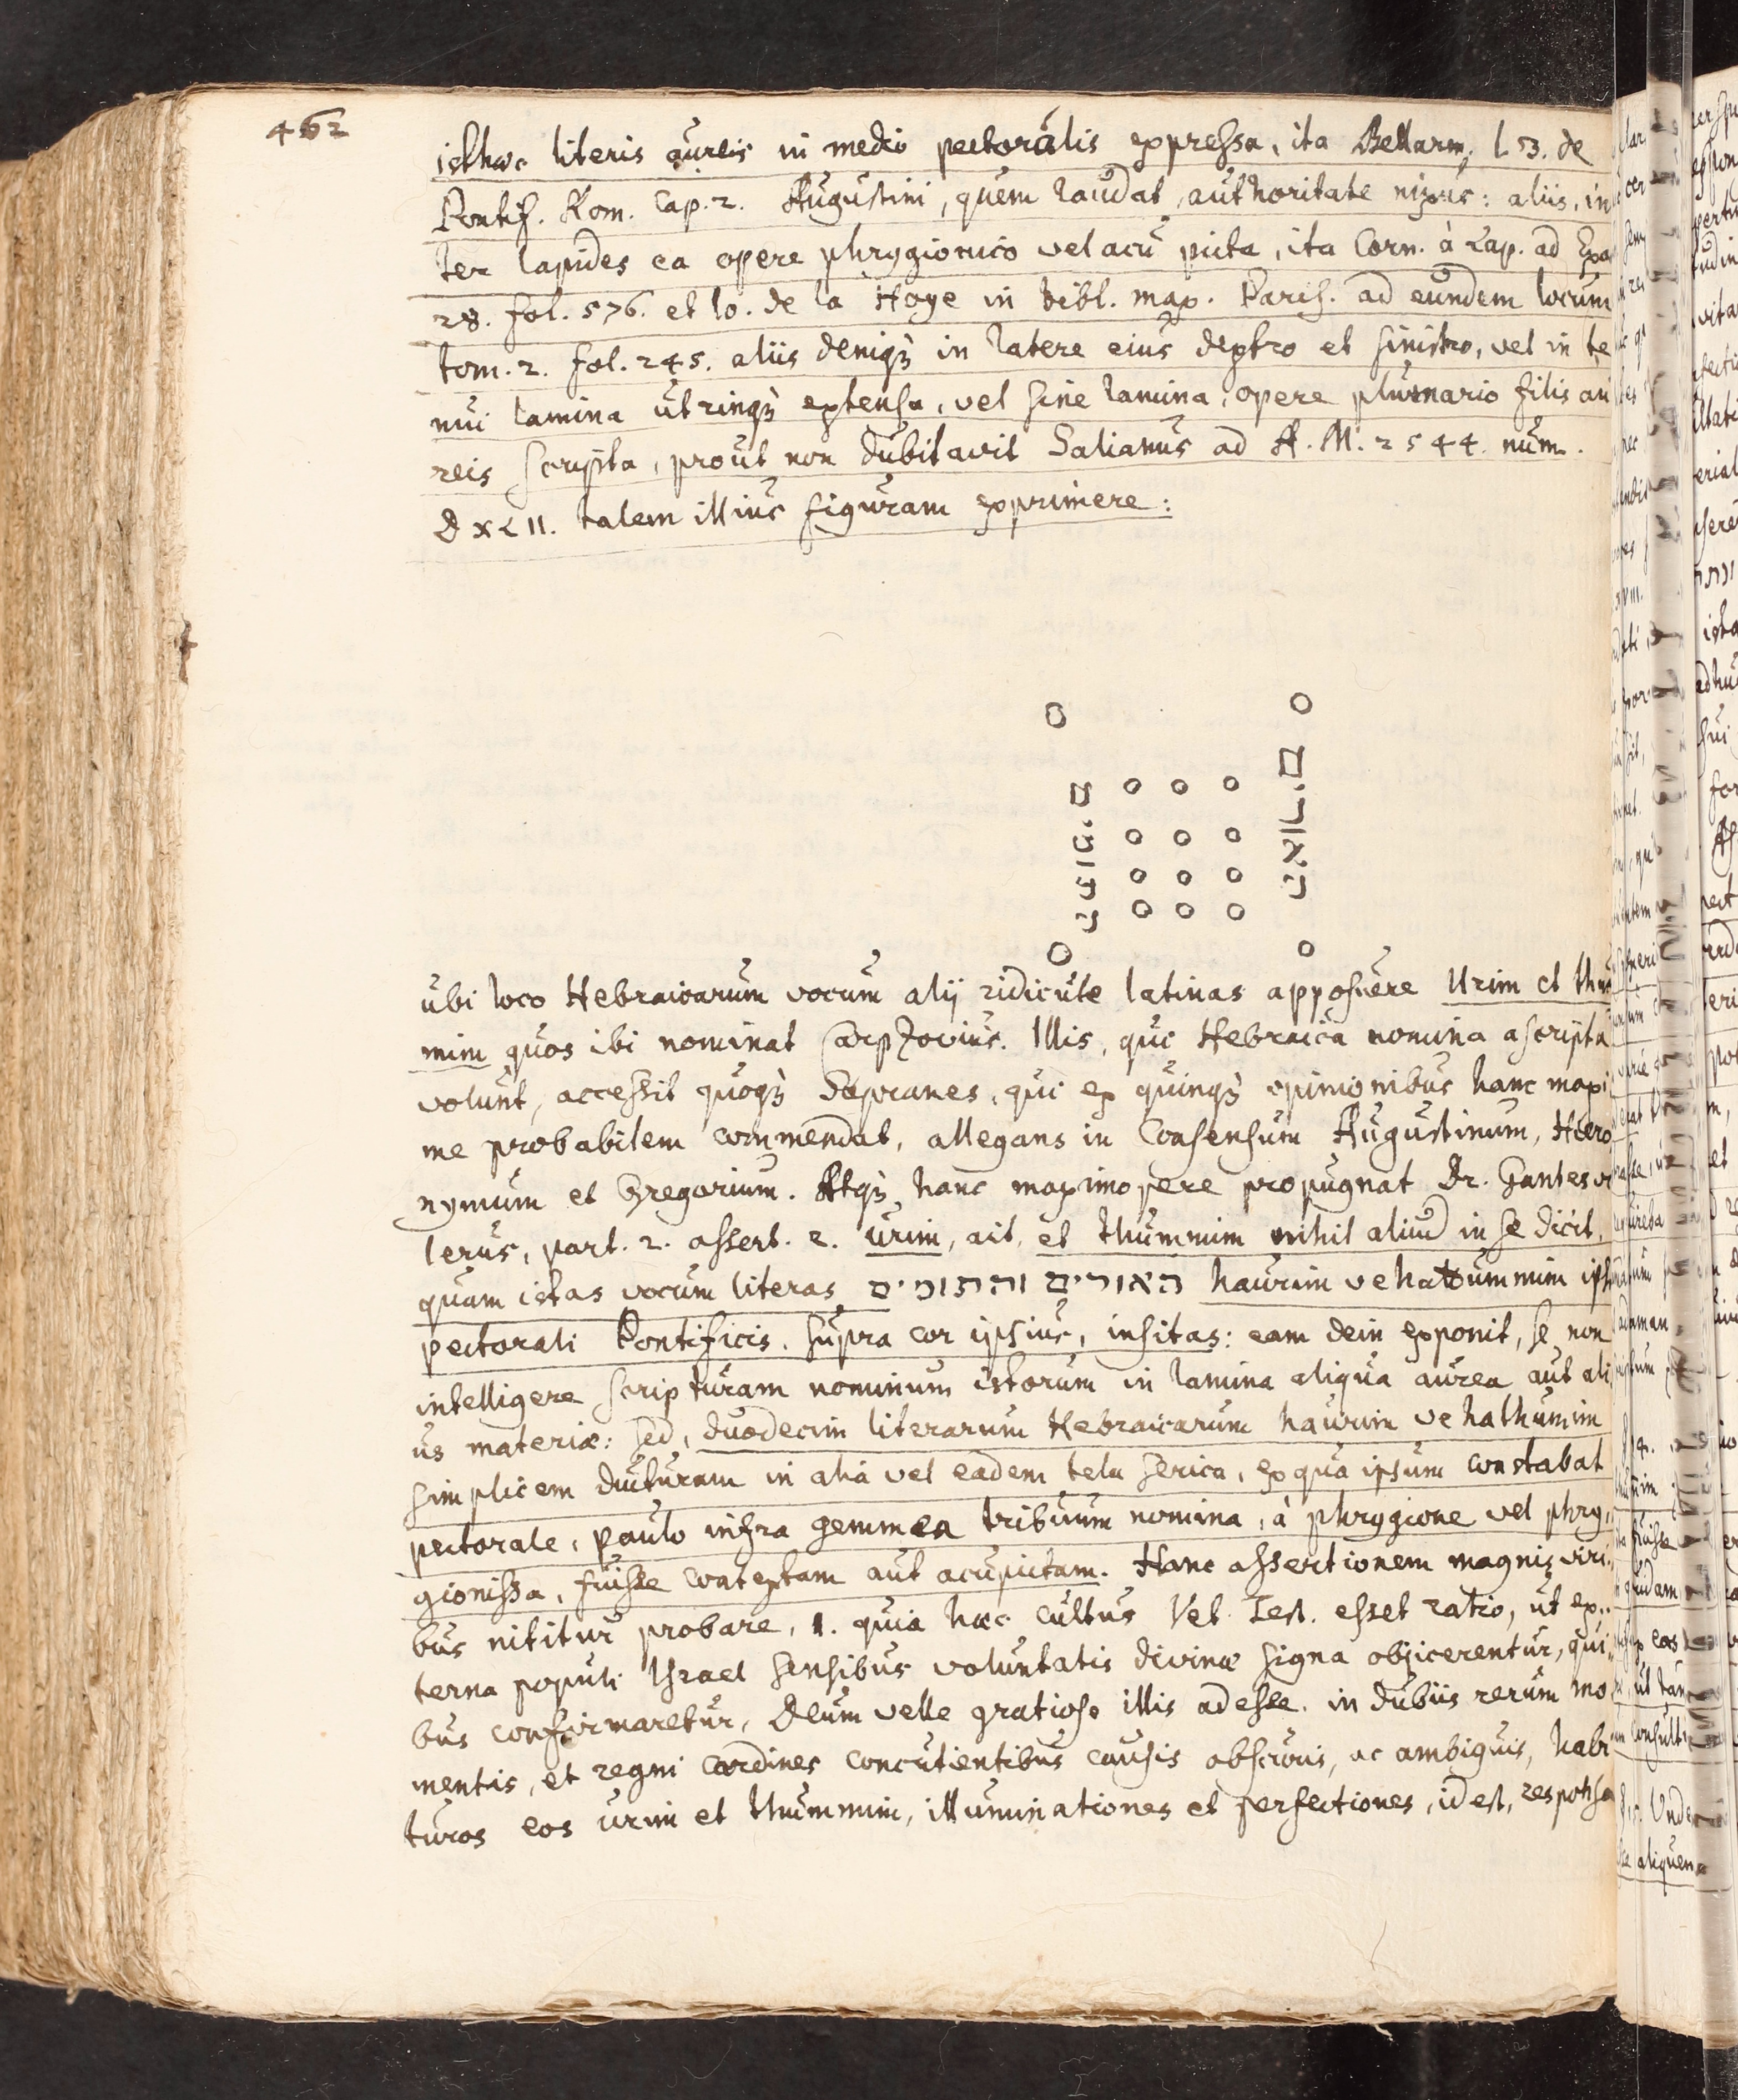 462
isthaec literis aureis in medio pectoralis expressa, ita Bellarm. l. 3. de
Pontif. Rom. Cap. 2. Augustini, quem laudat, authoritate nixus: aliis, in
ter lapides ea opere phrygionico vel acu picta, ita Corn. à Lap. ad Exo
28. fol. 576. et Io. de la Haye in bibl. max. Paris. ad eundem locum
tom. 2. fol. 245. aliis deniqȝ in latere eius dextro et sinistro, vel in te
nui lamina utrinqȝ extensa, vel sine lamina, opere plumario filis au
reis scripta, prout non dubitavit Salianus ad A. M. 2544. num.
DXLII. talem illius figuram exprimere:
תומים
אורים
ubi loco Hebraicarum vocum alij ridicule latinas apposuere Urim et thu
mim quos ibi nominat Carpzovius. Illis, qui Hebraica nomina ascripta
volunt, accessit quoqȝ qui ex quinqȝ opinionibus hanc maxi
me probabilem commendat, allegans in Consensum Augustinum, Hiero
nymum et Gregorium. Atqȝ hanc maximopere propugnat Dr. Gantesvi
lerus, part. 2. assert. 2. Urim, ait, et thummim nihil aliud in se dicit,
quam istas vocum literas האורים והתומים haurim vehatummim ipsi
pectorali Pontificis, supra cor ipsius, insitas: eam dein exponit, se non
intelligere scripturam nominum istorum in lamina aliqua aurea aut ali
us materiae: sed, duodecim literarum Hebraicarum haurim vehathumim
simplicem ducturam in alia vel eadem tela serica, ex qua ipsum constabat
pectorale, paulo infra gemmea tribuum nomina, à phrygione vel phry
gionissa, fuisse contextam aut acupictam. Hanc assertionem magnis viri
bus nititur probare, 1. quia haec cultus Vet. Test. esset ratio, ut ex
terna populi Israel sensibus voluntatis divinae signa objicerentur, qui
bus confirmaretur, Deum velle gratiose illis adesse. in dubiis rerum mo
mentis, et regni cardines concutientibus causis obscuris, ac ambiguis, habi
turos eos urim et thummim, illuminationes et perfectiones, id est, responsa